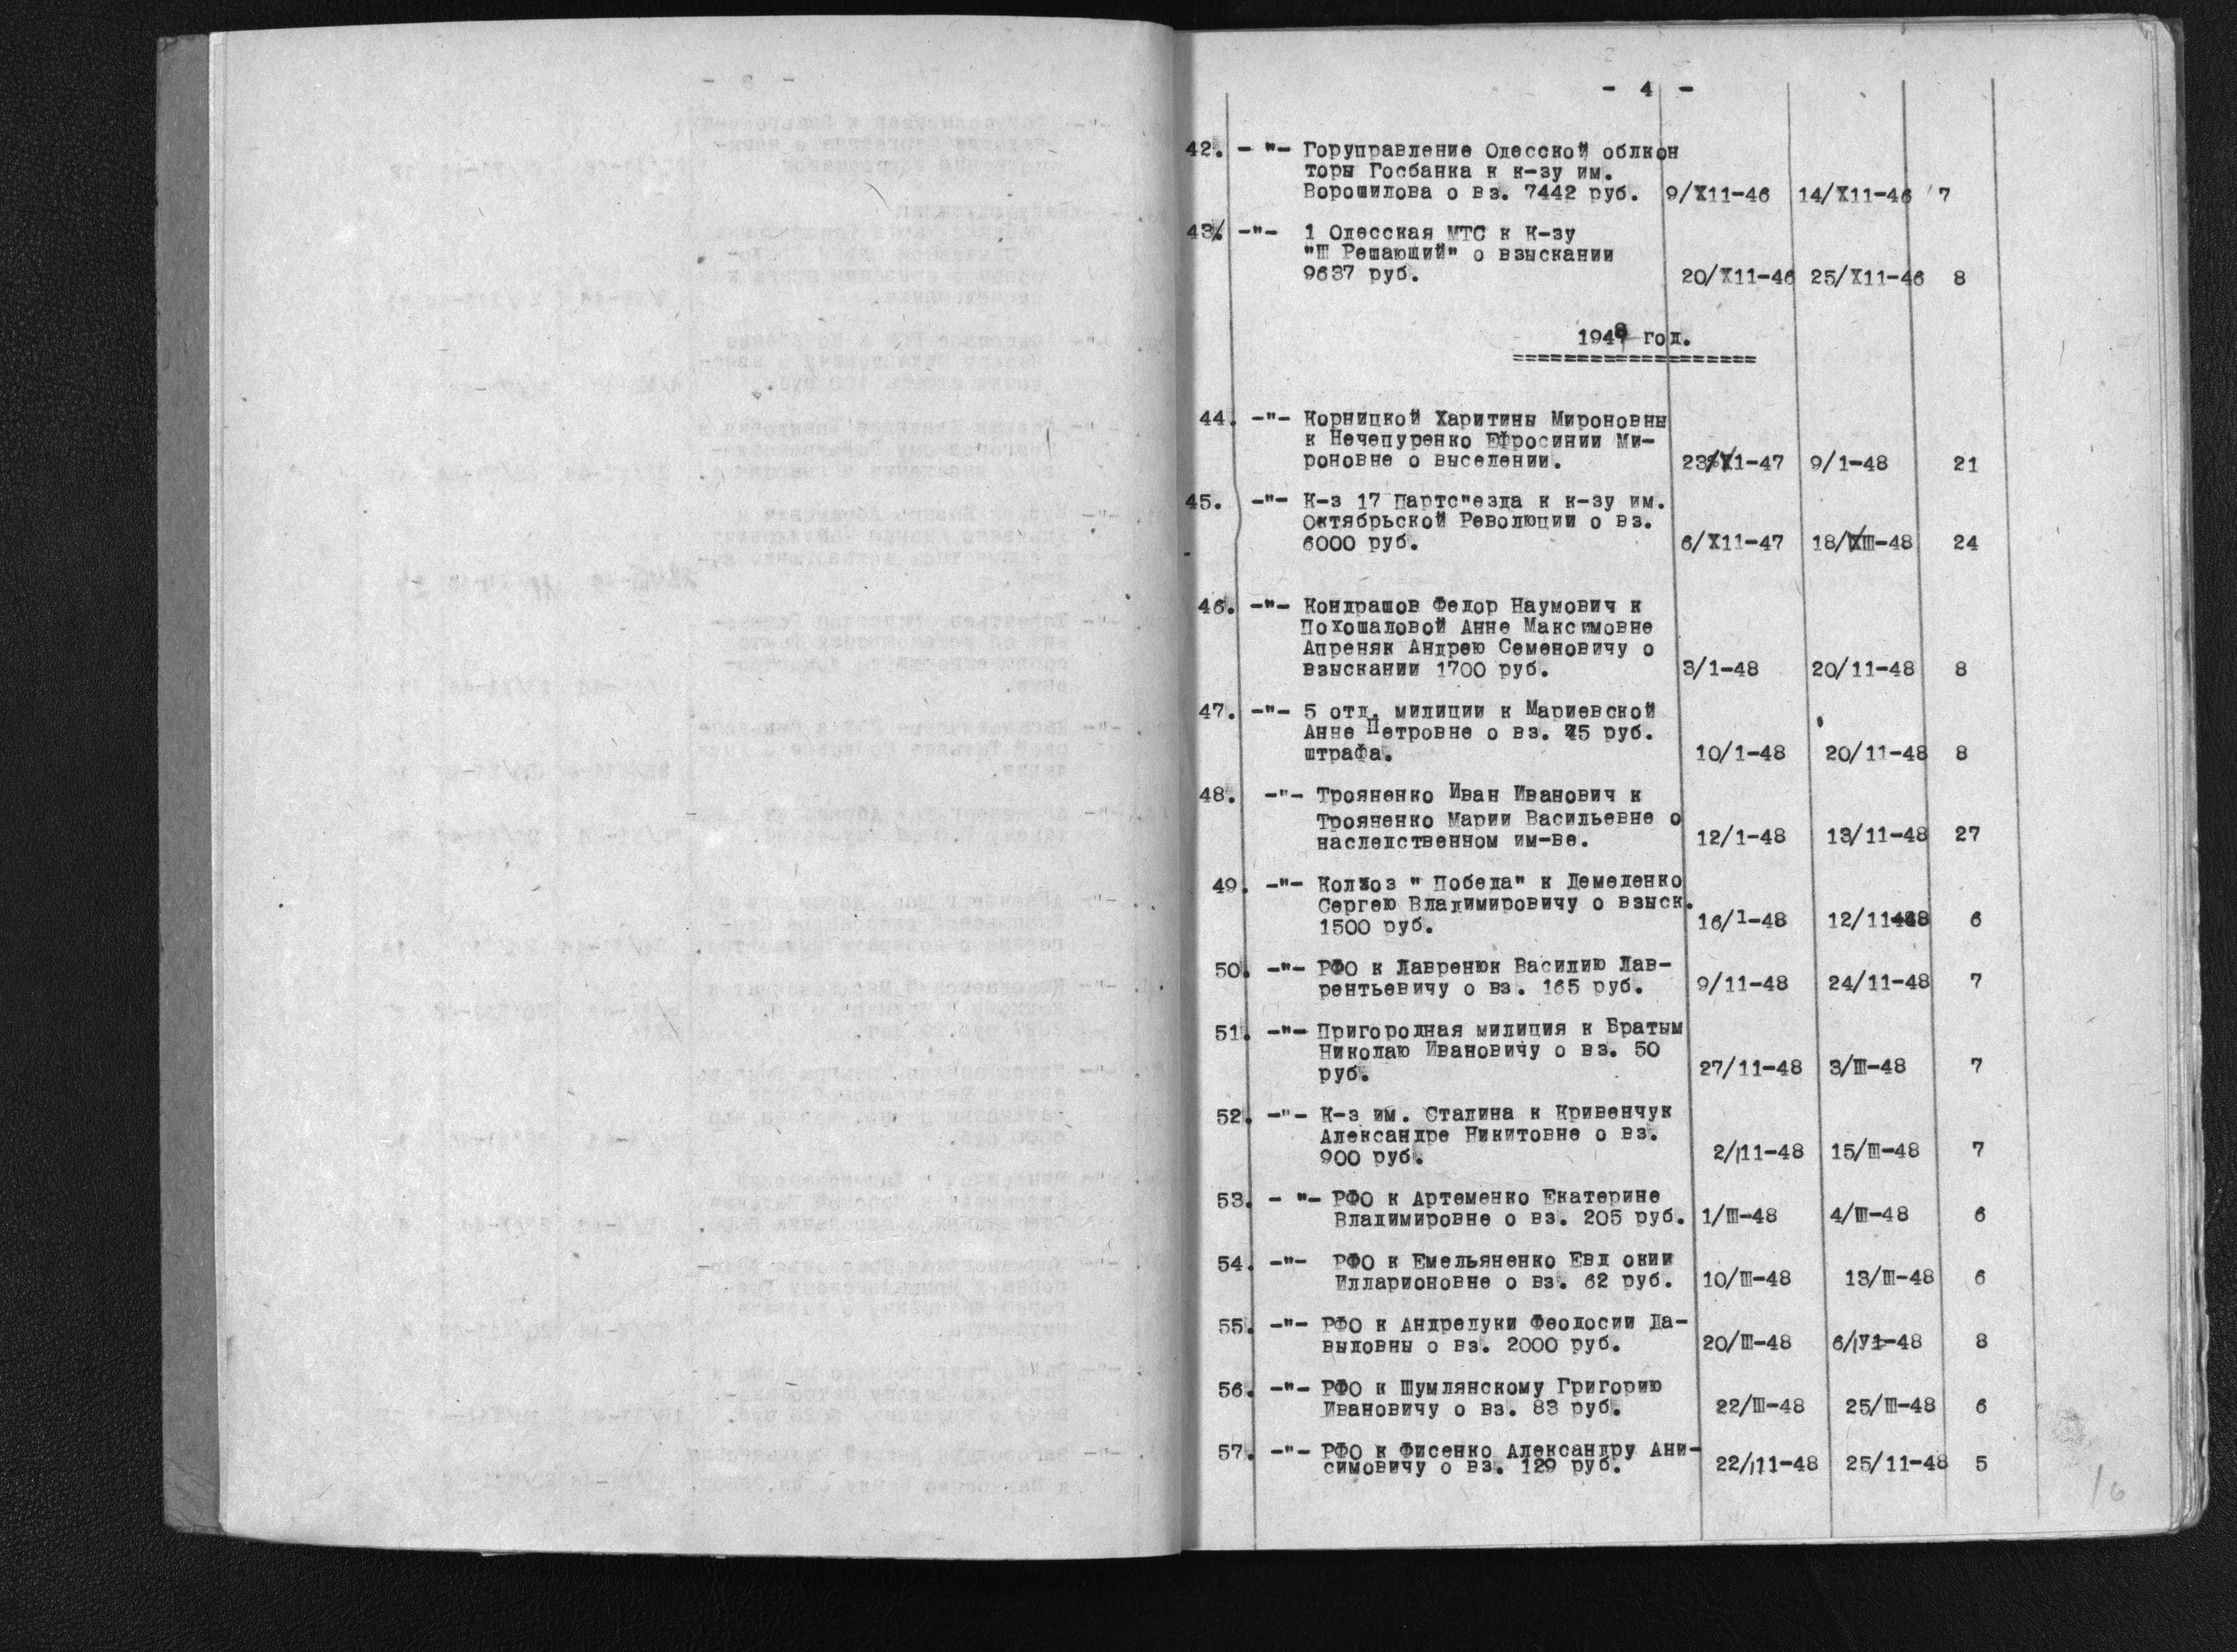 - 4 -
42. - "- Горуправление Одесской облкон
торы Госбанка к к-зу им.
Ворошилова о вз. 7442 руб. 9/X11-46 14/X11-46 7
43. -"- 1 Одесская МТС к К-зу
"Ш Решающий" о взыскании
9637 руб. 20/X11-46 25/X11-46 8
1948 год.
===================
44. -"- Корницкой Харитины Мироновны
к Нечепуренко Ефросинии Ми-
роновне о выселении. 23/X1-47 9/1-48 21
45. -"- К-з 17 Партс"езда к к-зу им.
Октябрьской Революции о вз.
6000 руб. 6/X11-47 18/Ш-48 24
46. -"- Кондрашов Федор Наумович к
Похошаловой Анне Максимовне
Апреняк Андрею Семеновичу о
взыскании 1700 руб. 3/1-48 20/11-48 8
47. -"- 5 отд. милиции к Мариевской
Анне Петровне о вз. 75 руб.
штрафа. 10/1-48 20/11-48 8
48. -"- Трояненко Иван Иванович к
Трояненко Марии Васильевне о
наследственном им-ве. 12/1-48 13/11-48 27
49. -"- Колхоз " Победа" к Демеденко
Сергею Владимировичу о взыск.
1500 руб. 16/1-48 12/11-48 6
50. -"- РФО к Лавренюк Василию Лав-
рентьевичу о вз. 165 руб. 9/11-48 24/11-48 7
51. -"- Пригородная милиция к Братым
Николаю Ивановичу о вз. 50
руб. 27/11-48 3/Ш-48 7
52. -"- К-з им. Сталина к Кривенчук
Александре Никитовне о вз.
900 руб. 2/111-48 15/Ш-48 7
53. - "- РФО к Артеменко Екатерине
Владимировне о вз. 205 руб. 1/Ш-48 4/Ш-48 6
54. -"- РФО к Емельяненко Евд окии
Илларионовне о вз. 62 руб. 10/Ш-48 13/Ш-48 6
55. -"- РФО к Андрелуки Феодосии Да-
выдовны о вз. 2000 руб. 20/Ш-48 6/1У-48 8
56. -"- РФО к Шумлянскому Григорию
Ивановичу о вз. 83 руб. 22/Ш-48 25/Ш-48 6
57. -"- РФО к Фисенко Александру Ани-
симовичу о вз. 129 руб. 22/111-48 25/11-48 5
16